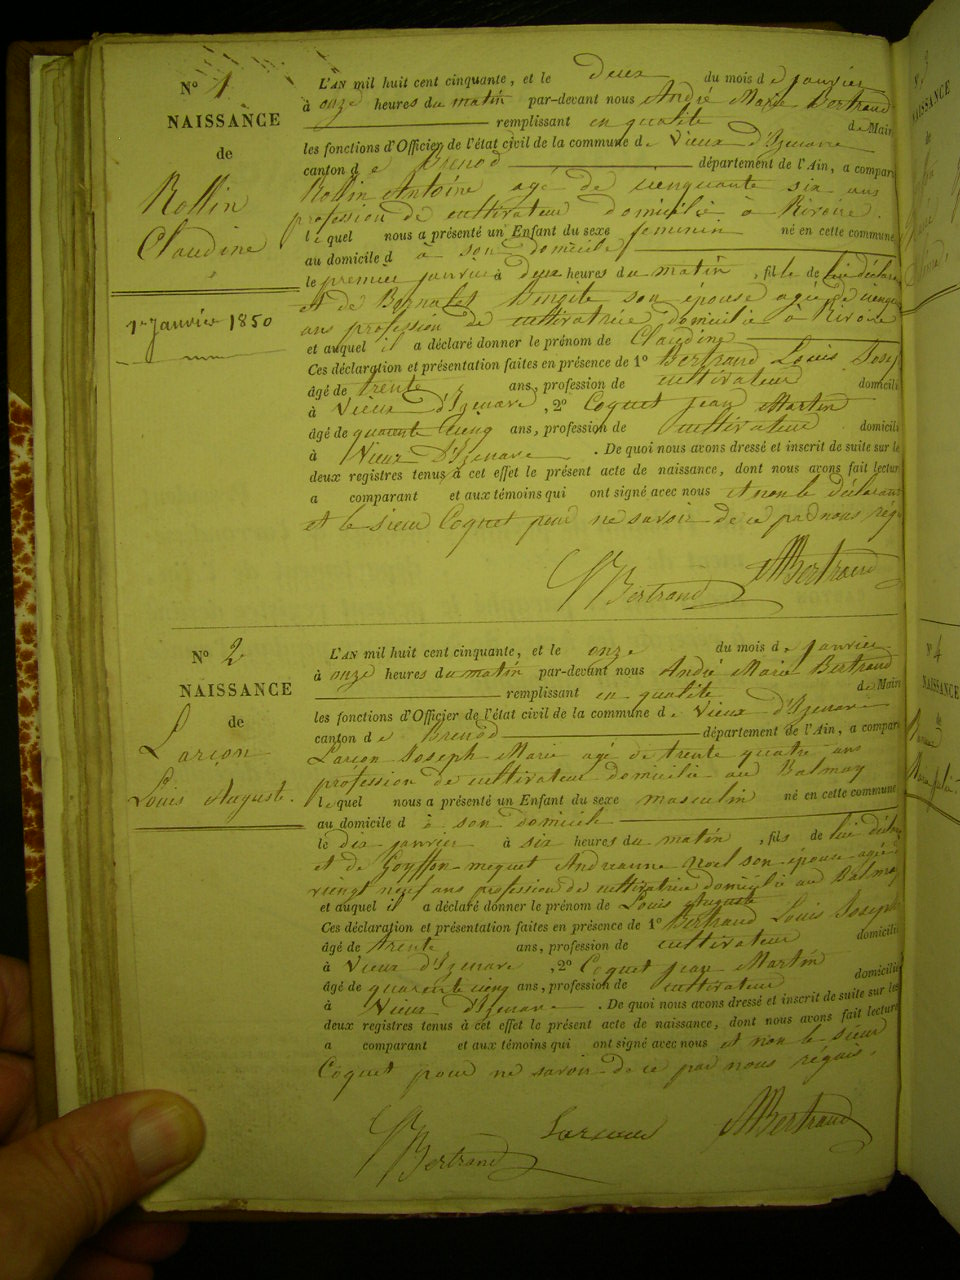 N° 1
NAISSANCE
de
Rollin
Claudine
1er Janvier 1850
L'AN mil huit cent cinquante, et le deux du mois de janvier
à onze heures du matin par-devant nous André Marie Bertrand
remplissant en qualité de Maire
les fonctions d'Officier de l'état civil de la commune de Vieux d'Izenave
canton de Brenod département de l'Ain, a compar
Rollin Antoine agé de cienquante six ans
profession de cultivateur domicilié à Rivoire.
lequel nous a présenté un Enfant du sexe feminin né en cette commune
au domicile d à son domicile
le premier janvier à deux heures du matin, fille de lui déclar
et de son épouse agé de cienq
ans profession de cultivatrice domicilié à Rivoire
et auquel il a déclaré donner le prénom de Claudine
Ces déclaration et présentation faites en présence de 1° Bertrand Louis Josep
âgé de trente ans, profession de cultivateur domicili
à Vieux d'Izenave, 2° Coquet jean Martin
âgé de quarente cienq ans, profession de cultivateur domicili
à Vieux D'Izenave. De quoi nous avons dressé et inscrit de suite sur le
deux registres tenus à cet effet le présent acte de naissance, dont nous avons fait lectur
a comparant et aux témoins qui ont signé avec nous et non le déclarant
et le sieur Coquet pour ne savoir de ce par nous réq
Bertrand AMBertrand
N° 2
NAISSANCE
de
Larçon
Louis Auguste.
L'AN mil huit cent cinquante, et le onze du mois de janvier
à onze heures du matin par-devant nous André Marie Bertrand
remplissant en qualité de Maire
les fonctions d'Officier de l'état civil de la commune de Vieux d'Izenave
canton de Brenod département de l'Ain, a compar
Larçon Joseph Marie agé de trente quatre ans
profession de cultivateur domicilié au Balmay
lequel nous a présenté un Enfant du sexe masculin né en cette commune
au domicile d à son domicile
le dix janvier à six heures du matin, fils de lui déclar
et de Goyffon-mequet Andreanne Noel son épouse agé
viengt neuf ans profession de cultivatrice domicilié au Balmay
et auquel il a déclaré donner le prénom de Louis Auguste
Ces déclaration et présentation faites en présence de 1° Bertrand Louis Joseph
âgé de trente ans, profession de cultivateur domicilié
à Vieux d'Izenave, 2° Coquet jean Martin
âgé de quarente cienq ans, profession de cultivateur domicilié
à Vieux d'Izenave. De quoi nous avons dressé et inscrit de suite sur les
deux registres tenus à cet effet le présent acte de naissance, dont nous avons fait lecture
a comparant et aux témoins qui ont signé avec nous et non le sieur
Coquet pour ne savoir de ce par nous requis.
Bertrand Larçon AMBertrand
N° 4
NAISSANCE
de